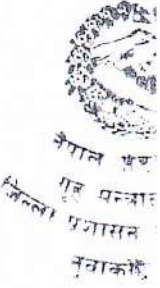 नेपाल
गृह मन्त्रा
जिल्ला प्रशासन
नुवाको